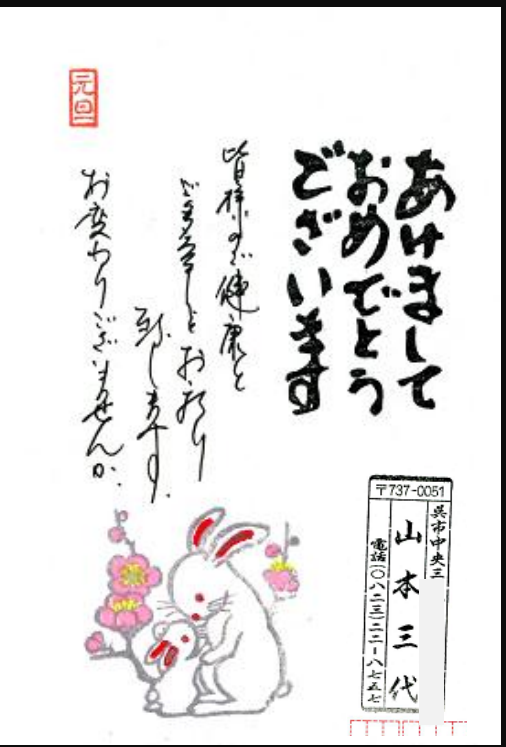 あけまして
おめでとう
ございます
皆様のご健康と
お祈り
致します。
お変わりございませんか。
元旦
〒737-0051
呉市中央三
山本三代
電話(〇八二三)二二ー八七五七